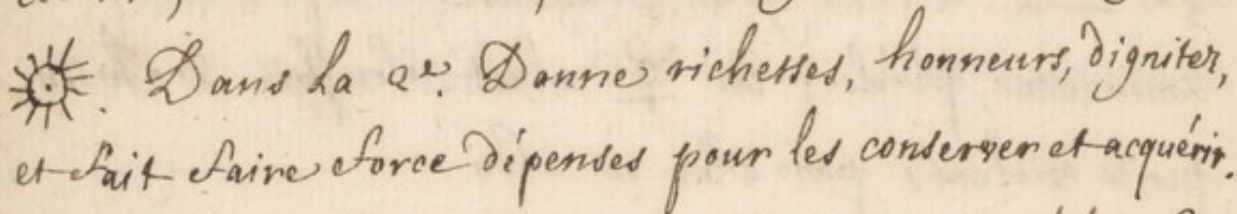 ☉. Dans la 2e. Donne richesses, honneurs, digniter,
et fait faire force dépenses pour les conserver et acquérir.